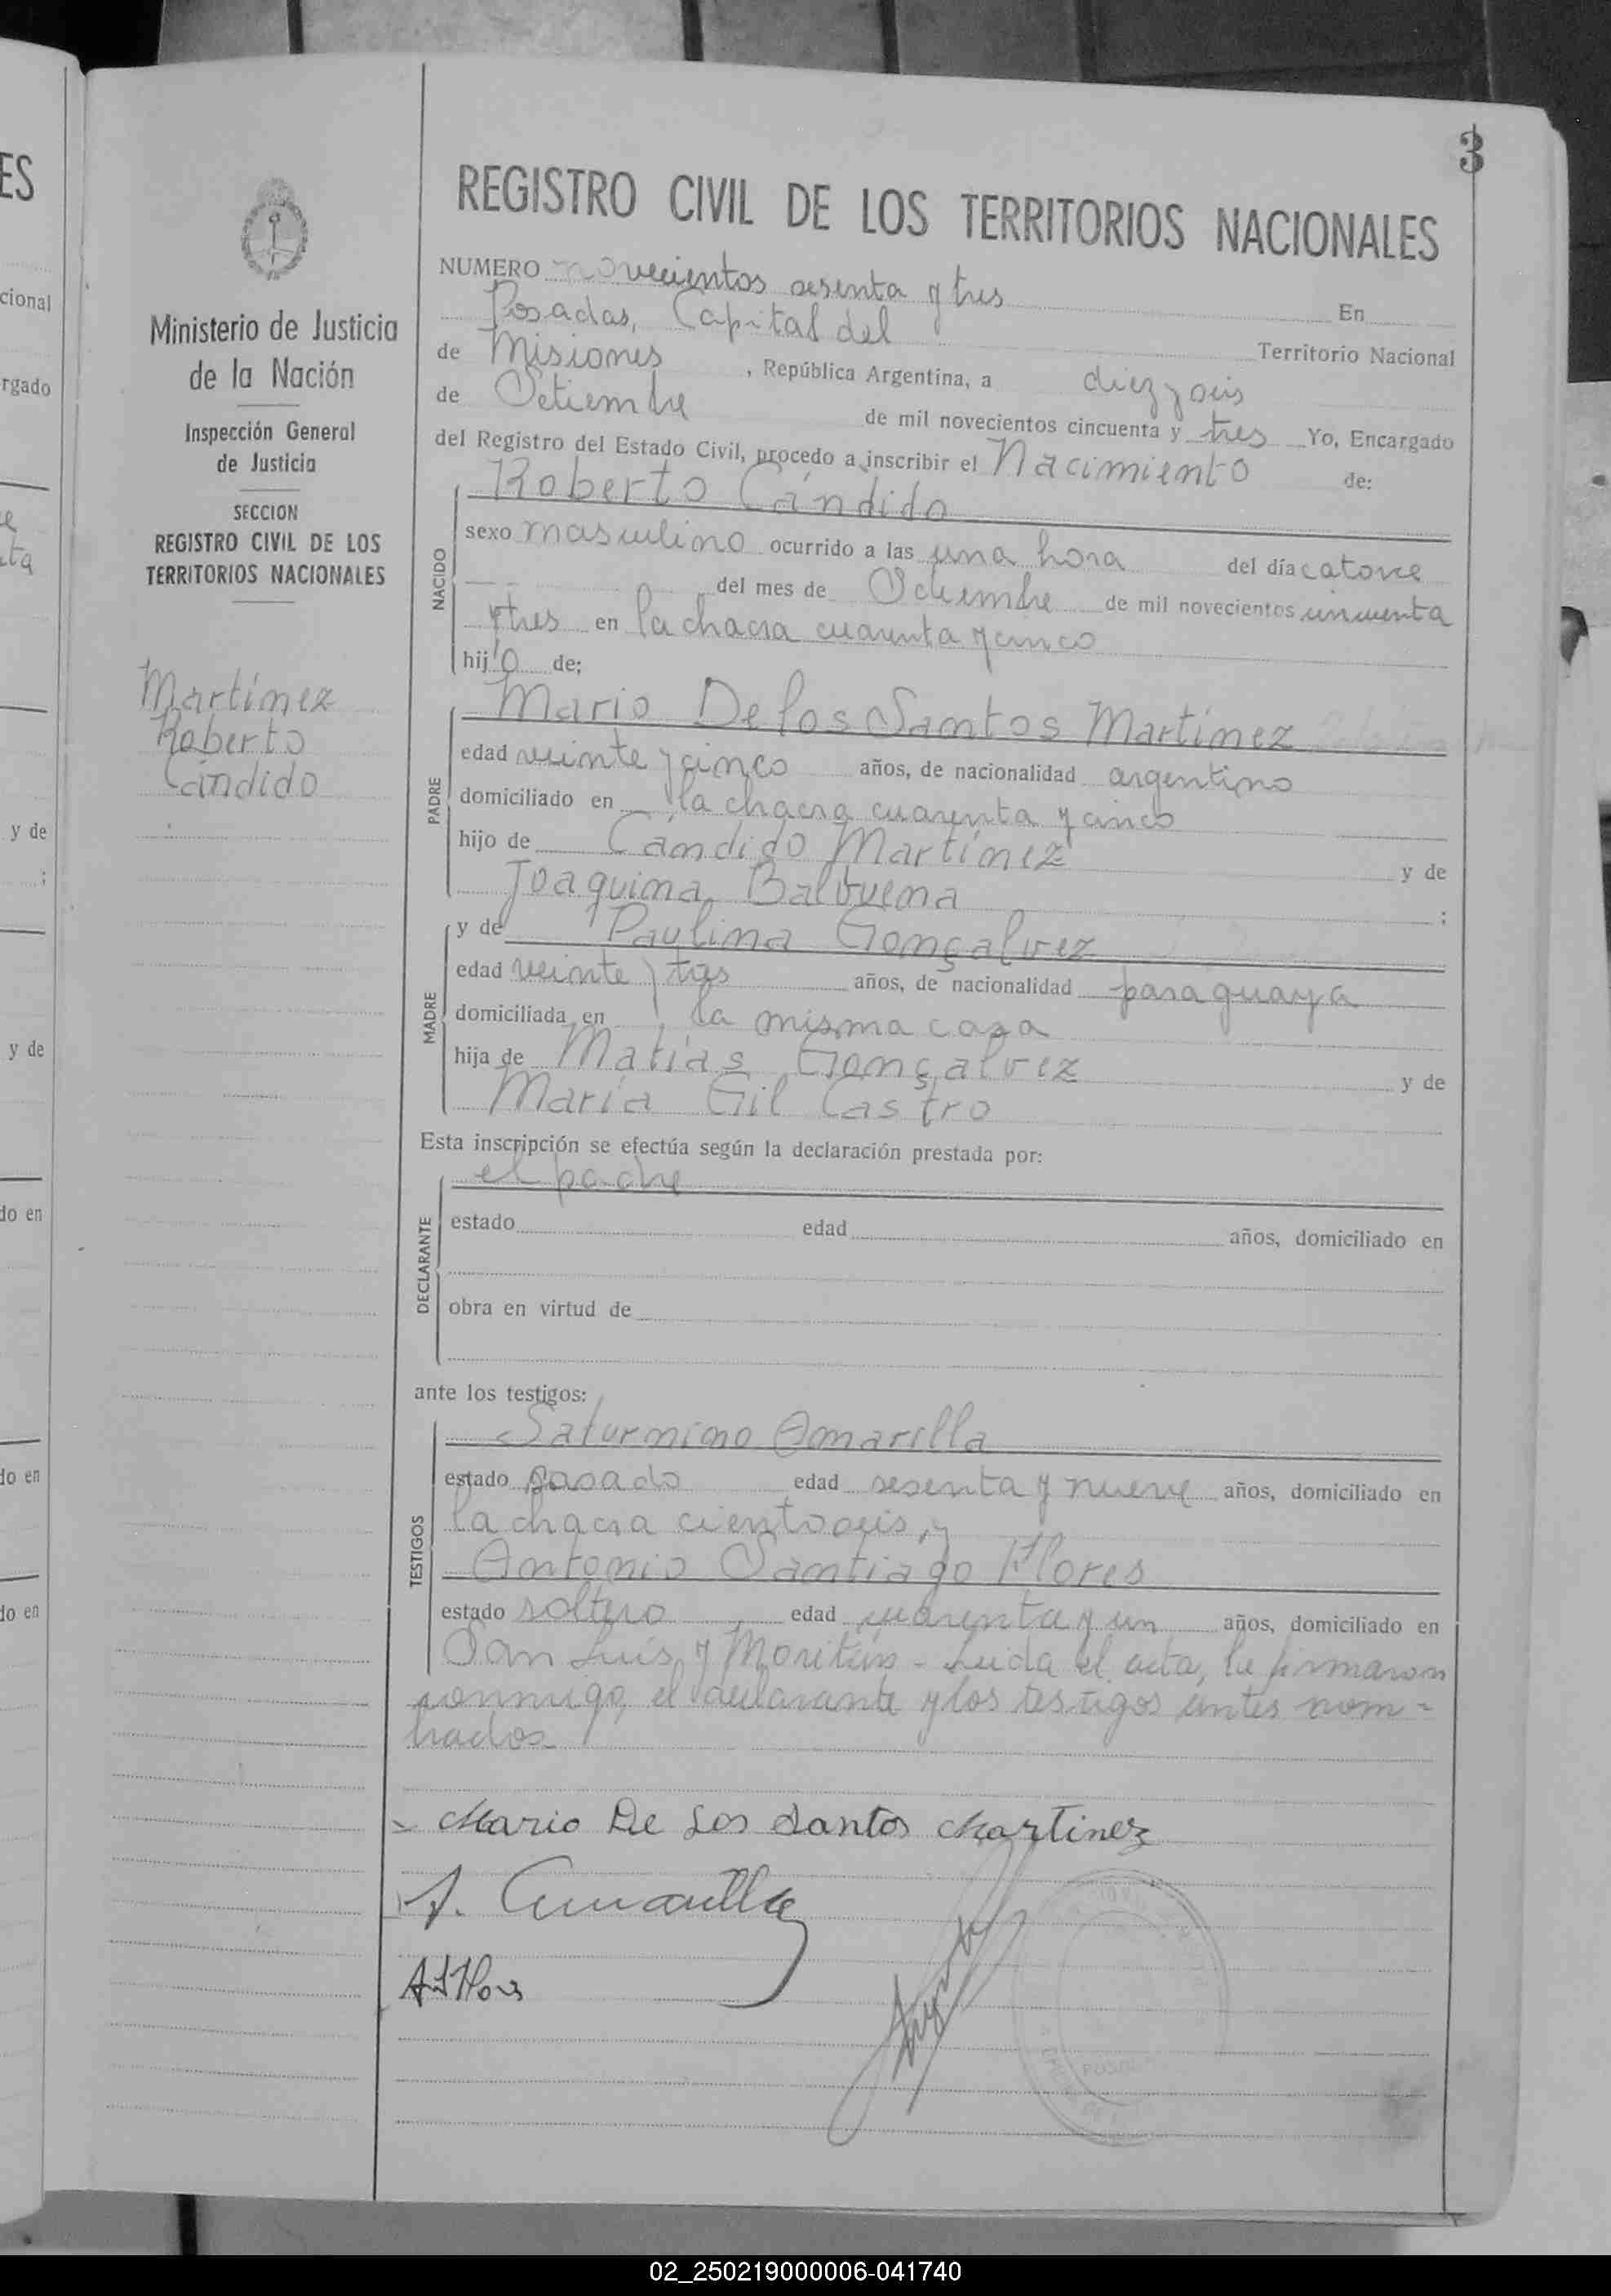 3
ES
cional
rgado
y de
y de
do en
do en
do en
Ministerio de Justicia
de la Nación
Inspección General
de Justicia
SECCION
REGISTRO CIVIL DE LOS
TERRITORIOS NACIONALES
Martínez
Roberto
Cándido
REGISTRO CIVIL DE LOS TERRITORIOS NACIONALES
NUMERO novecientos sesenta y tres En
Posadas, Capital del Territorio Nacional
de Misiones, República Argentina, a diez y seis
de Setiembre de mil novecientos cincuenta y tres Yo, Encargado
del Registro del Estado Civil, procedo a inscribir el Nacimiento de:
Roberto Cándido
NACIDO
sexo masculino ocurrido a las una hora del día catorce
del mes de Setiembre de mil novecientos cincuenta
y tres en la chacra cuarenta y cinco
hijo de;
Mario De los Santos Martínez
PADRE
edad veinte y cinco años, de nacionalidad argentino
domiciliado en la chacra cuarenta y cinco
hijo de Cándido Martínez y de
Joaquina Balbuena ;
y de Paulina Gonçalvez
MADRE
edad veinte y tres años, de nacionalidad paraguaya
domiciliada en la misma casa
hija de Matías Gonçalvez y de
María Gil Castro
Esta inscripción se efectúa según la declaración prestada por:
el padre
DECLARANTE
estado edad años, domiciliado en
obra en virtud de
ante los testigos:
Saturnino Amarilla
TESTIGOS
estado casado edad sesenta y nueve años, domiciliado en
la chacra ciento seis, y
Antonio Santiago Flores
estado soltero edad cuarenta y un años, domiciliado en
San Luis y Moritán - Leida el acta, la firmaron
conmigo, el declarante y los testigos antes nom-
brados
Mario De Los Santos Martinez
A. Amarilla
ASFlores
02_250219000006-041740